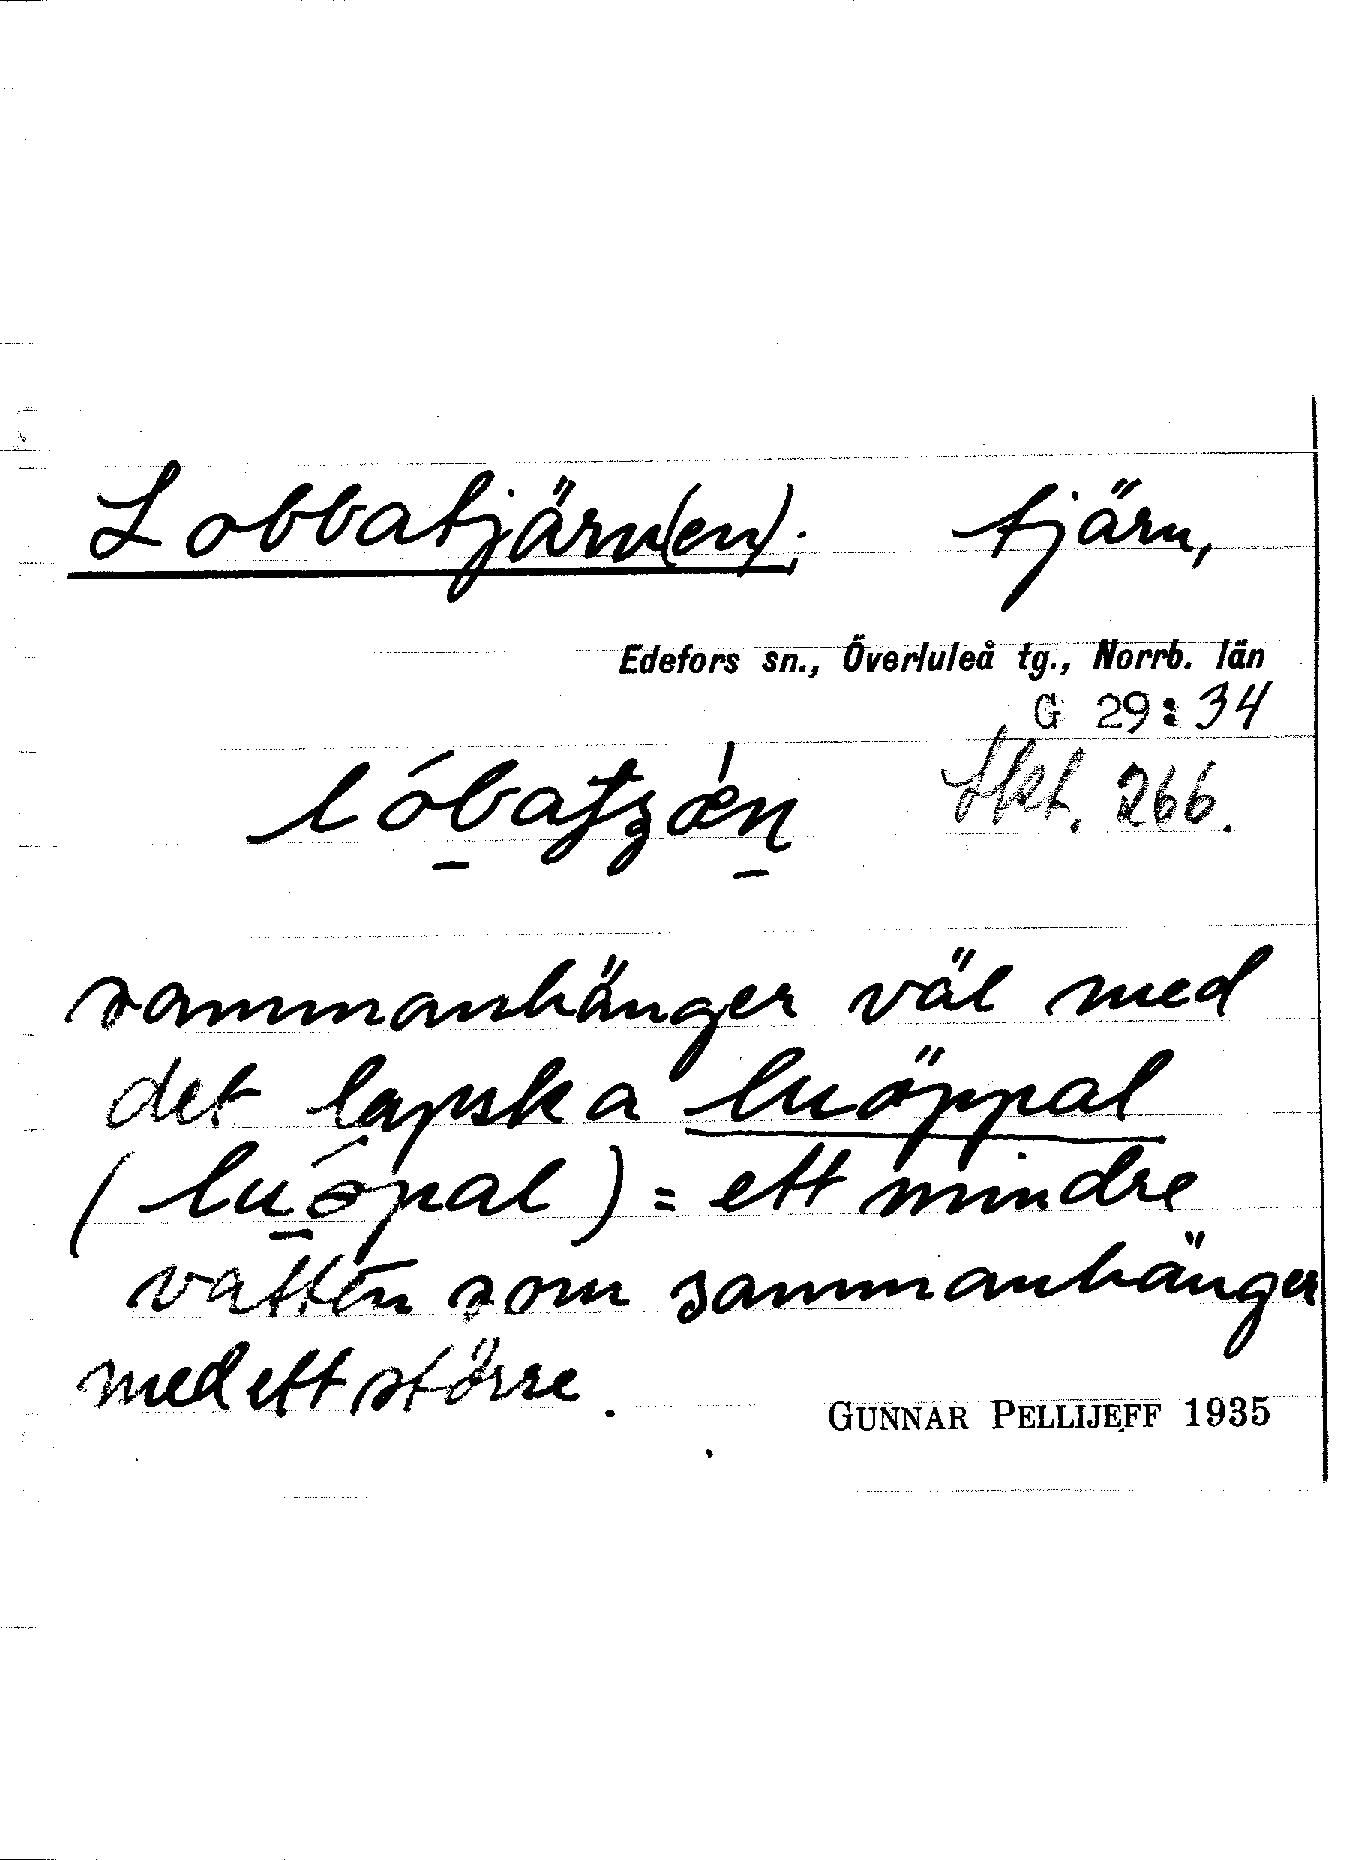 Lobbatjärn(en); tjärn,
Edefors sn., Överluleå tg., Norrb. län
G 29:34
lóbatʒǽn Skt. 266.
sammanhänger väl med
det lapska luöppal
(luópal) = ett mindre
vatten som sammanhänger
med ett större.
GUNNAR PELLIJEFF 1935